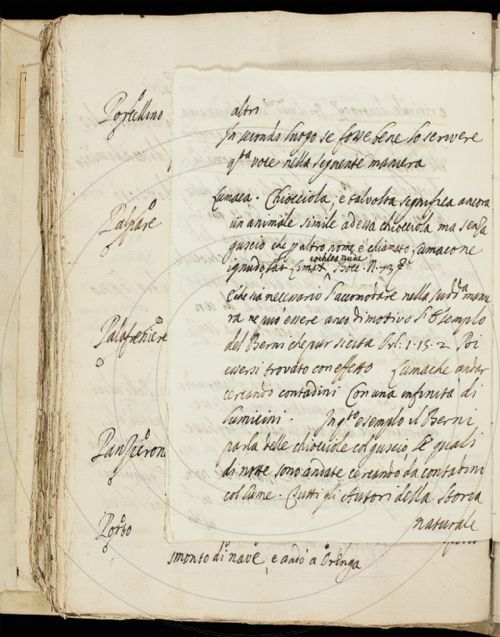 Porcellino
Palpare
Palafreniere
Porto
altri
In secondo luogo se fosse bene lo scrivere
q.ta voce nella seguente maniera
Lumaca. Chiocciola, e talvolta significa ancora
un animale simile ad essa chiocciola ma senza
guscio che p altro nome è chiamato Lumacone
ignudo. Lat. Limax, Bocc. N. 73
cochlea nuda
E che sia necessario l'accomodare nella sudd.a manie
ra ne può essere anco di motivo l'esemplo
del Berni che pur si cita Orl. 1. 15. 2 Poi
essersi trovato con effetto Lumache andar
cercando contadini Con una infinità di
Lumicini. In q.to esemplo il Berni
parla delle chiocciole col guscio le quali
di notte sono andate cercando da contadini
col lume. Tutti gli Autori della Storia
naturale
smontò di nave, e andò a